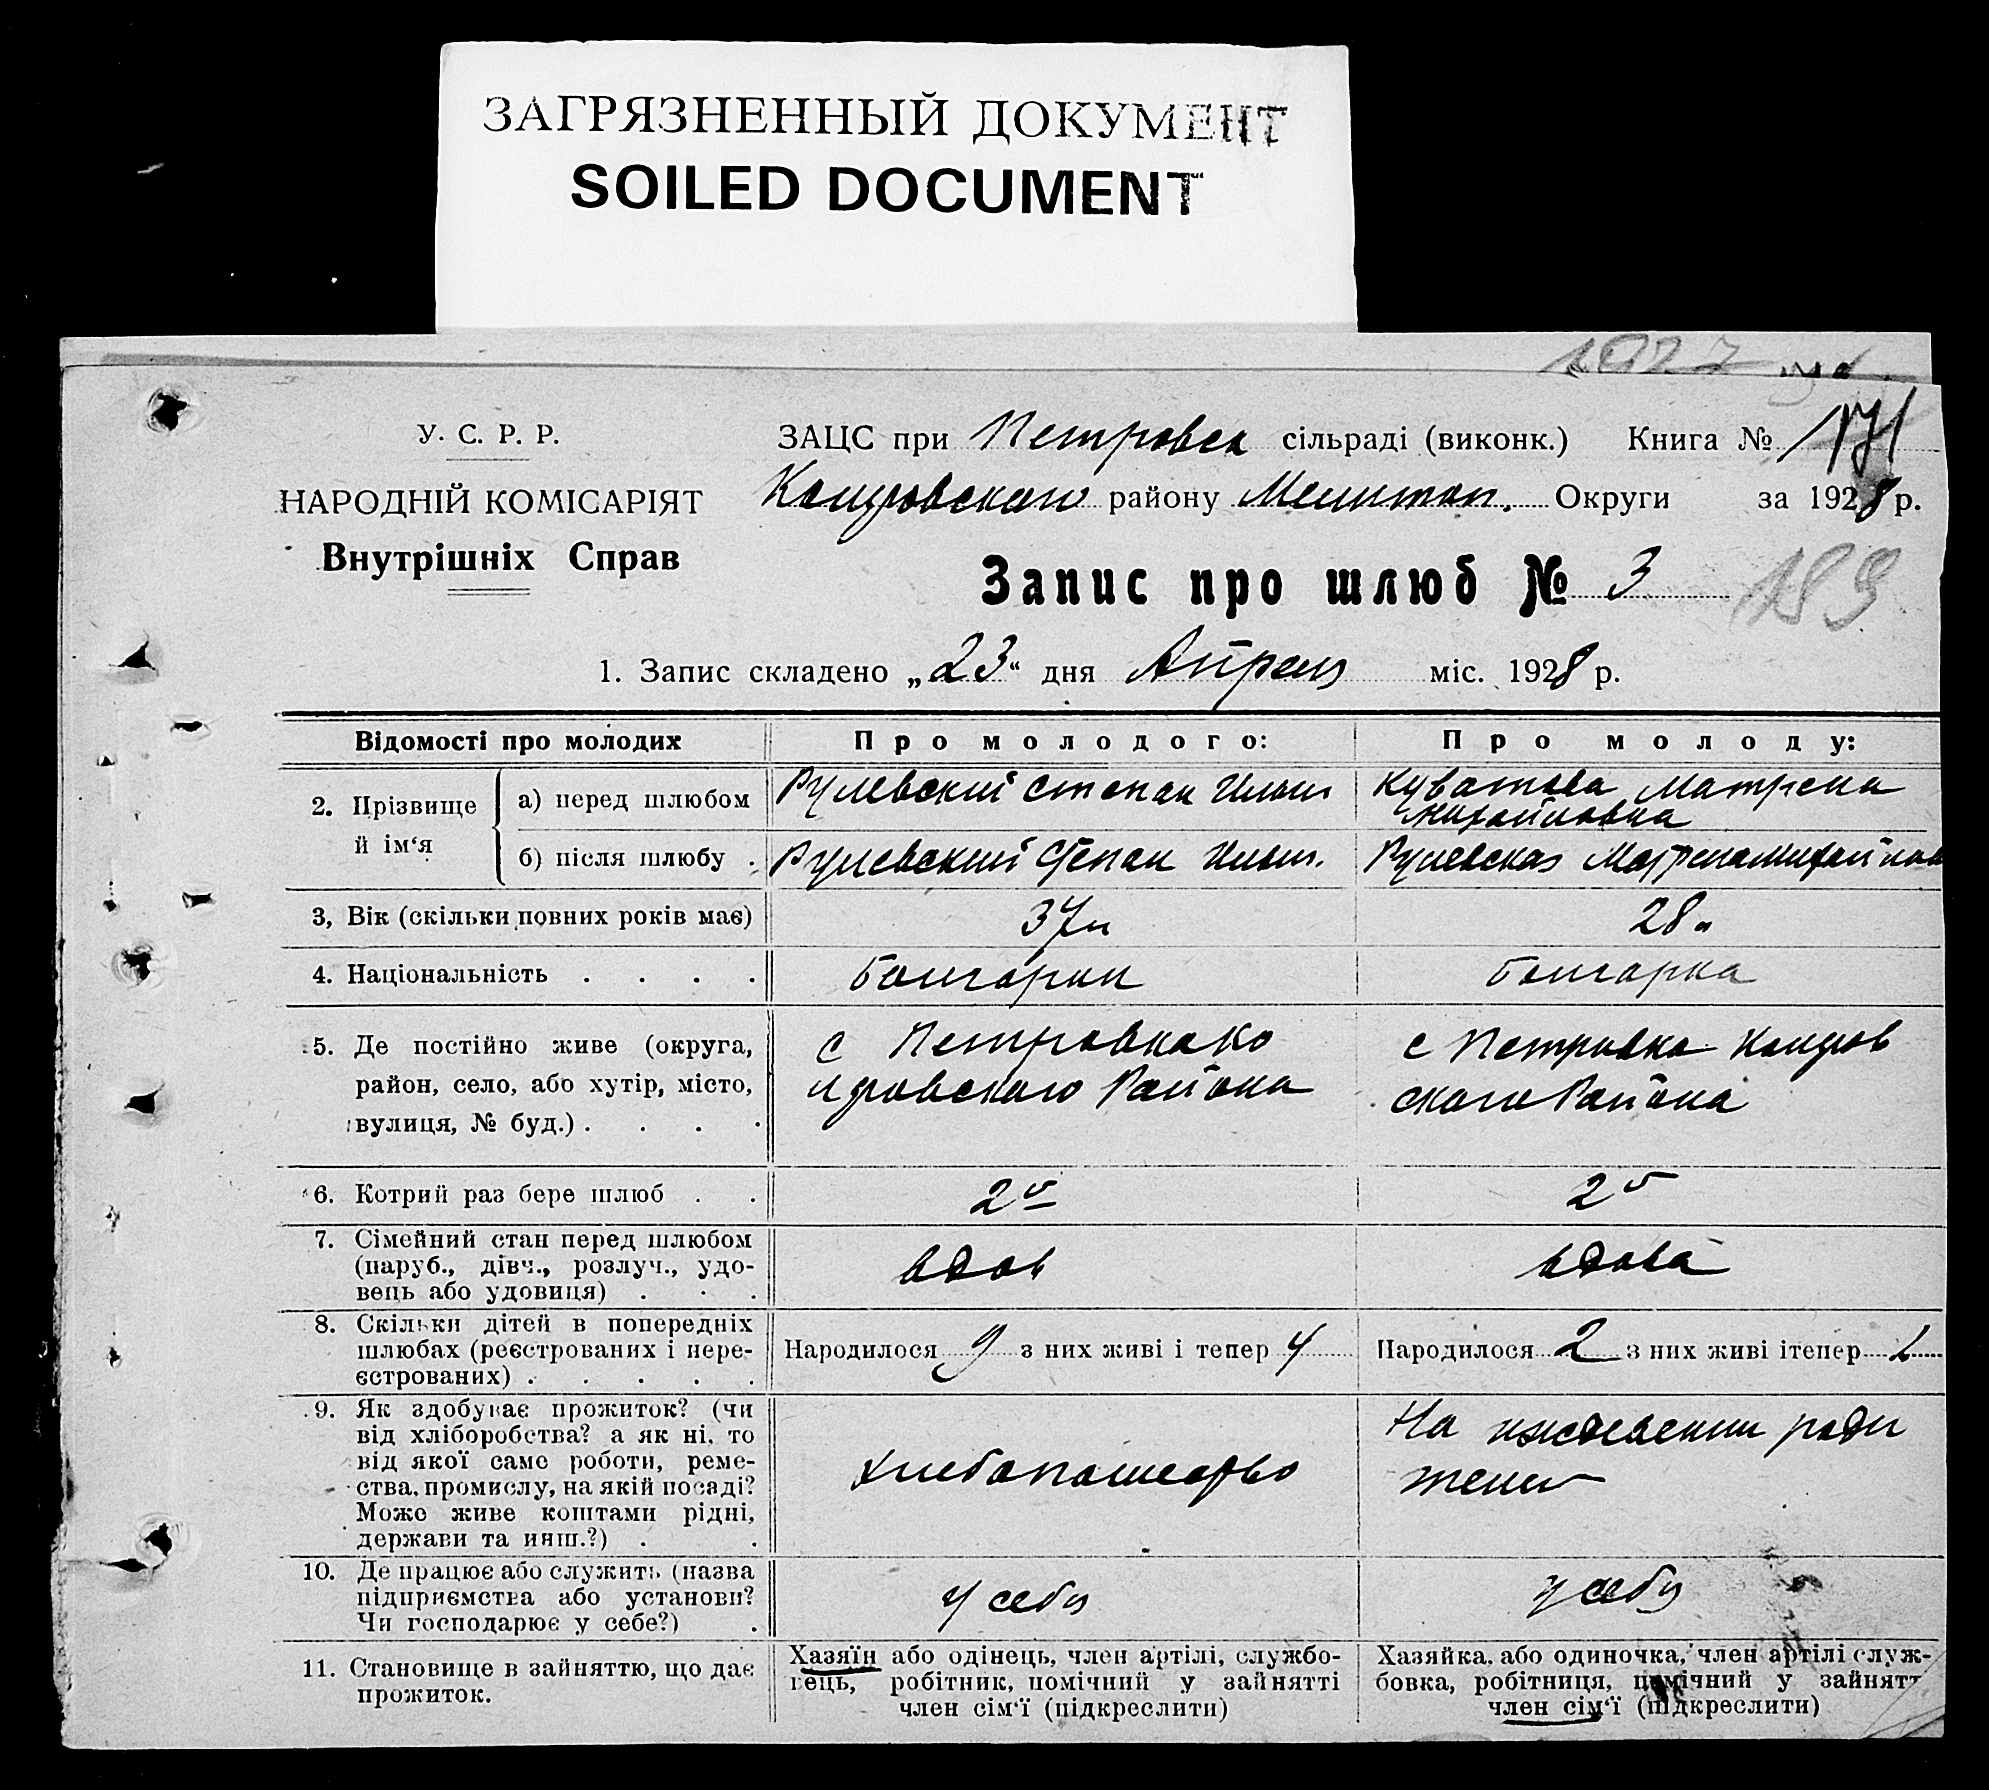 ЗАГРЯЗНЕННЫЙ ДОКУМЕНТ
SOILED DOCUMENT
У. С. Р. Р.
НАРОДНІЙ КОМІСАРІЯТ
Внутрішніх Справ
ЗАЦС при Петровск сільраді (виконк.) Книга №
района Мелитоп. Округи за 1928 р.
Запис про шлюб № 3
189
1. Запис складено „23“ дня Апреля міс. 1928 р.
Відомості про молодих
Про молодого:
Про молоду:
2. Прізвище й ім‘я
а) перед шлюбом
Рулевский Степан Ильич
Куватова Матрена
Михайловна
б) після шлюбу .
Рулевский Степан Ильич.
Рулевская Матрена Михайлов
3, Вік (скільки повних років має)
37л
28л
4. Національність . . . .
болгарин
болгарка
5. Де постійно живе (округа,
район, село, або хутір, місто,
вулиця, № буд.) . . . .
с Петровка Ко
лдровского Района
с Петровка Колдров
ского Района
6. Котрий раз бере шлюб . .
2й
2й
7. Сімейний стан перед шлюбом
(паруб., дівч., розлуч., удо-
вець або удовиця) . . .
вдов
вдова
8. Скільки дітей в попередніх
шлюбах (реєстрованих і нере-
єстрованих) . . . . .
Народилося 9 з них живі і тепер 4
Народилося 2 з них живі і тепер
9. Як здобуває прожиток? (чи
від хліборобства? а як ні, то
від якої саме роботи, реме-
ства, промислу, на якій посаді?
Може живе коштами рідні,
держави та инш.?) . .
хлебопашество
На иждевении роди
телей
10. Де працює або служить (назва
підприємства або установи?
Чи господарює у себе?) .
у себя
у себя
11. Становище в зайняттю, що дає
прожиток.
Хазяїн або одінець, член артілі, службо-
вець, робітник, помічний у зайнятті
член сім‘ї (підкреслити)
Хазяйка, або одиночка, член артілі служ-
бовка, робітниця, помічний у зайнятт
член сім‘ї (підкреслити)